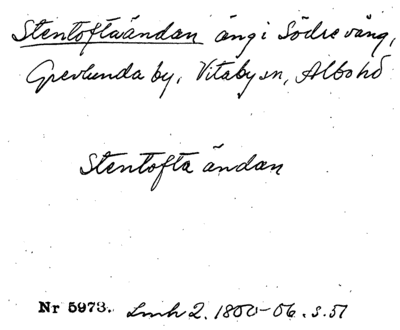 Stentoftaändan äng i Södre vång,
Grevlunda by, Vitaby sn, Albo hd
Stentofta ändan
Nr 5973. Lmh 2. 1800-06. s. 51